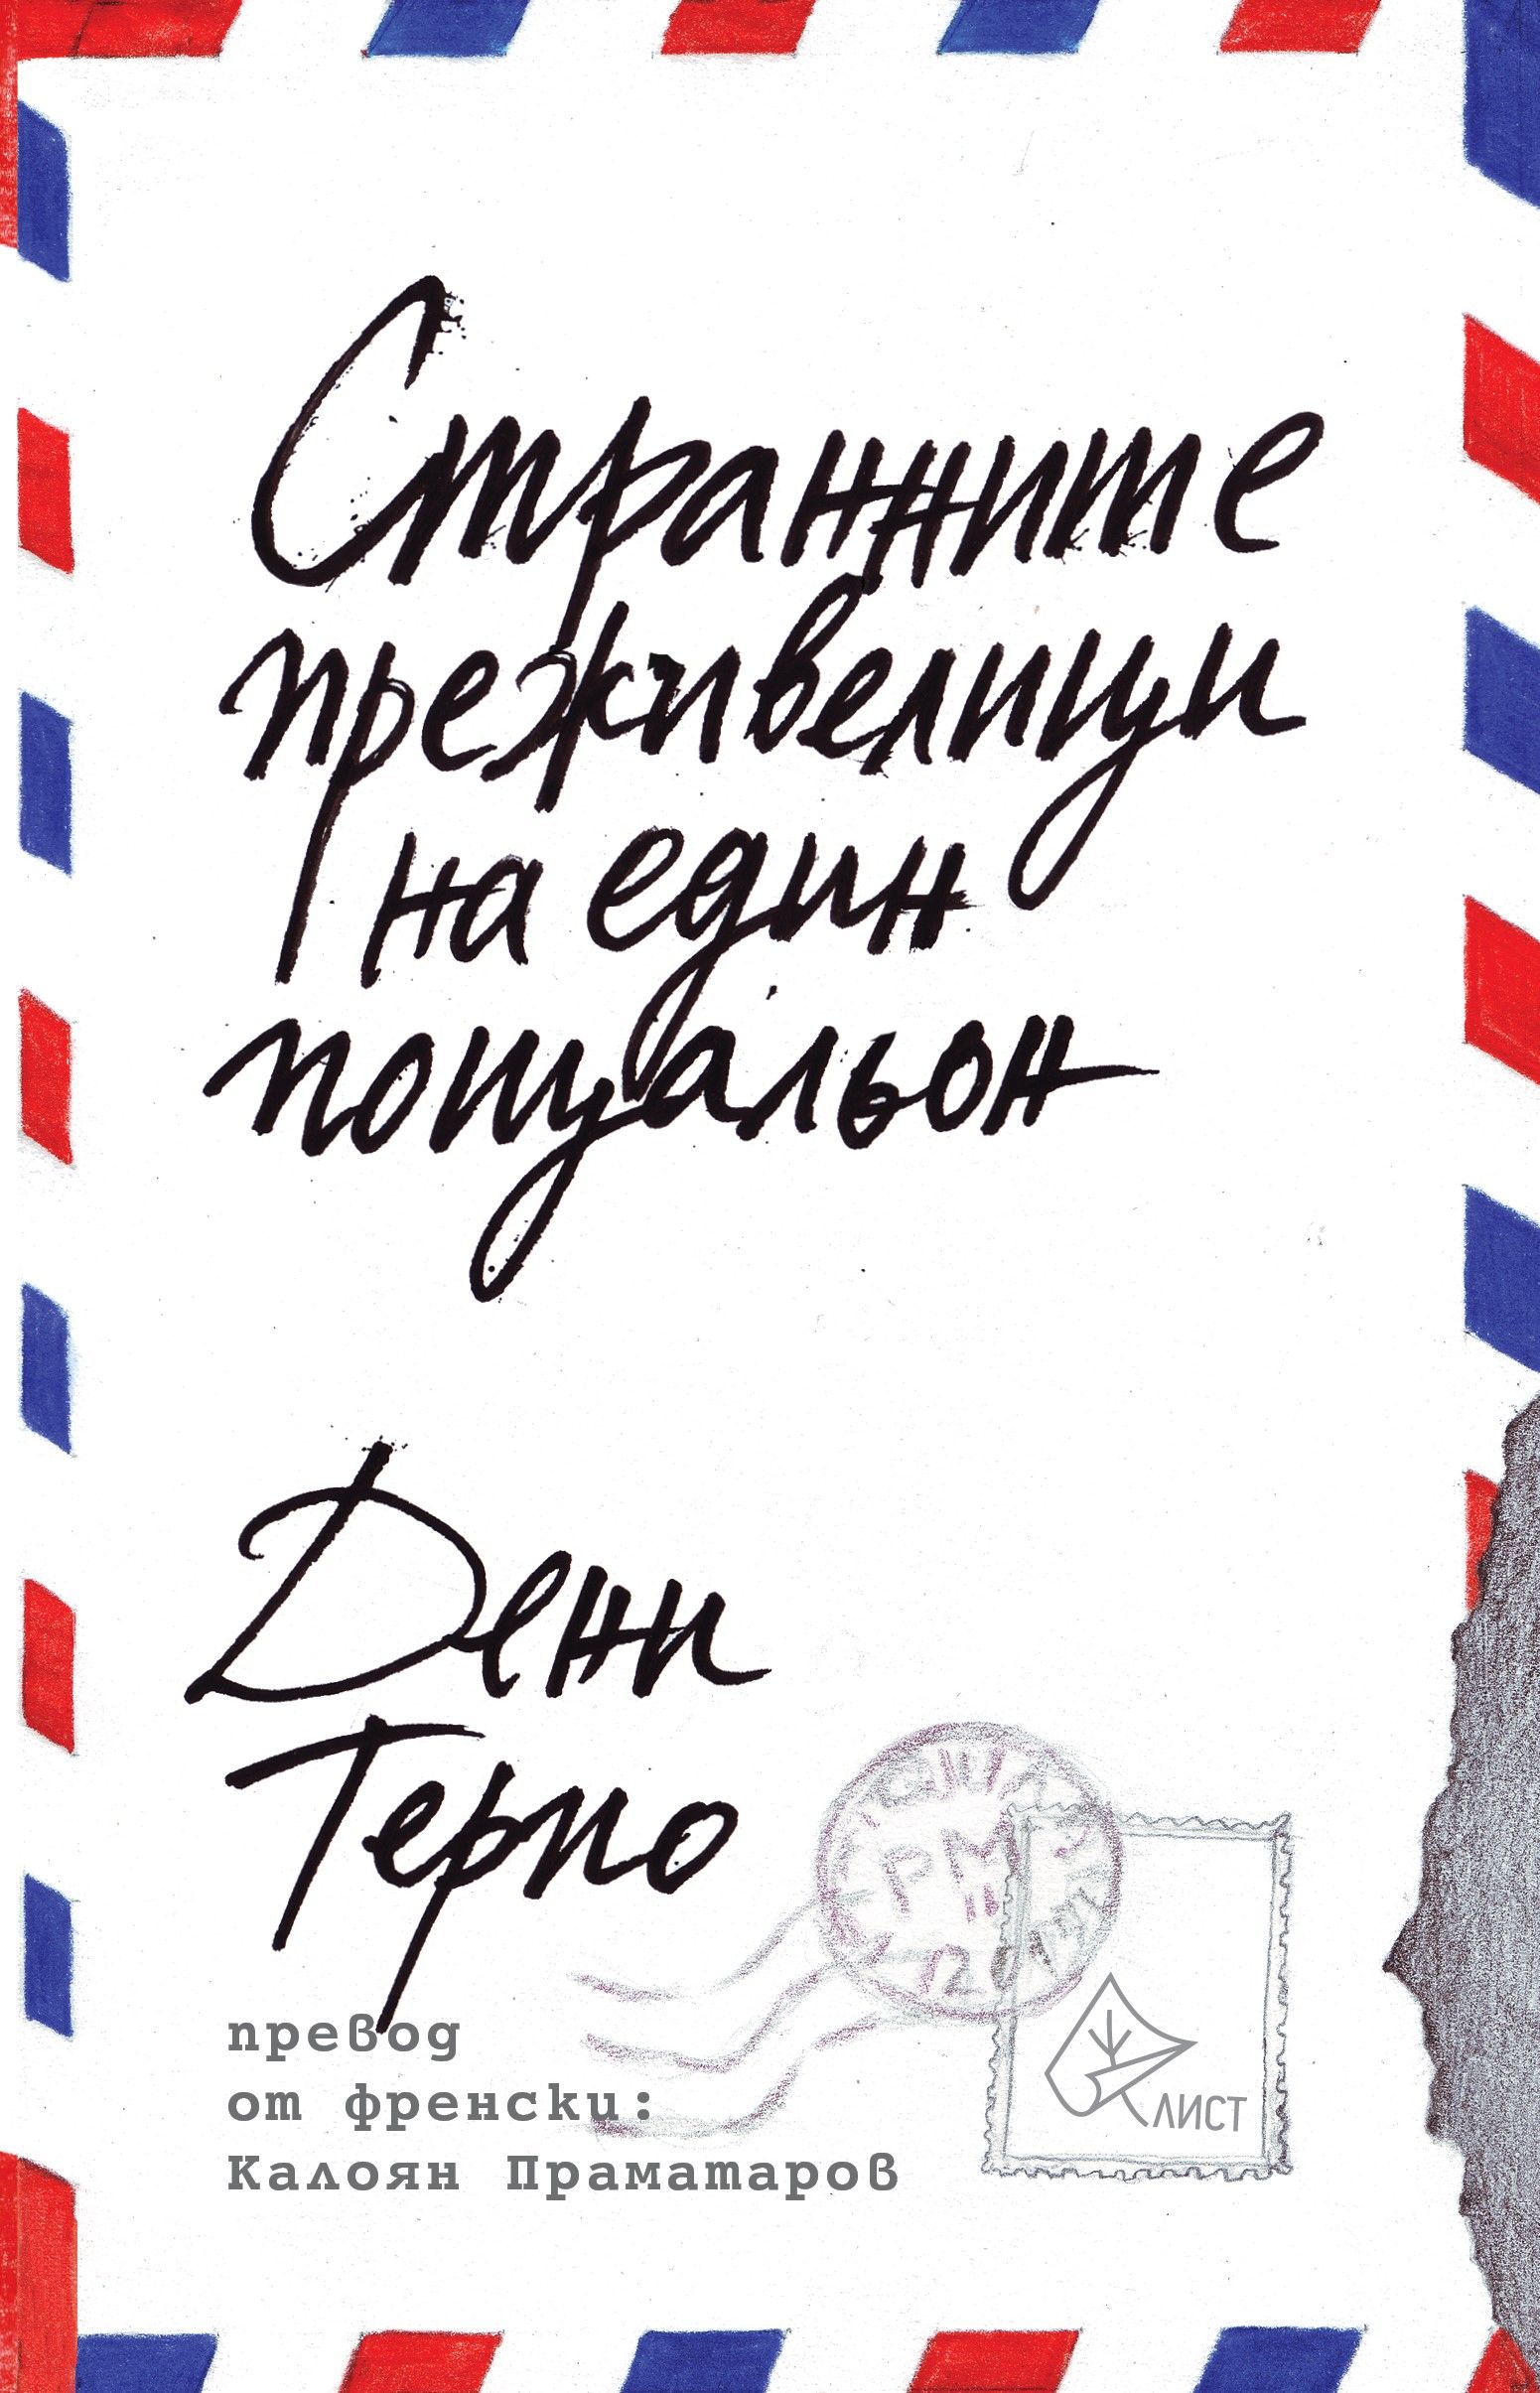 Странните
преживелици
на един
пощальон
Дени
Терио
превод
от френски:
Калоян Праматаров
ЛИСТ